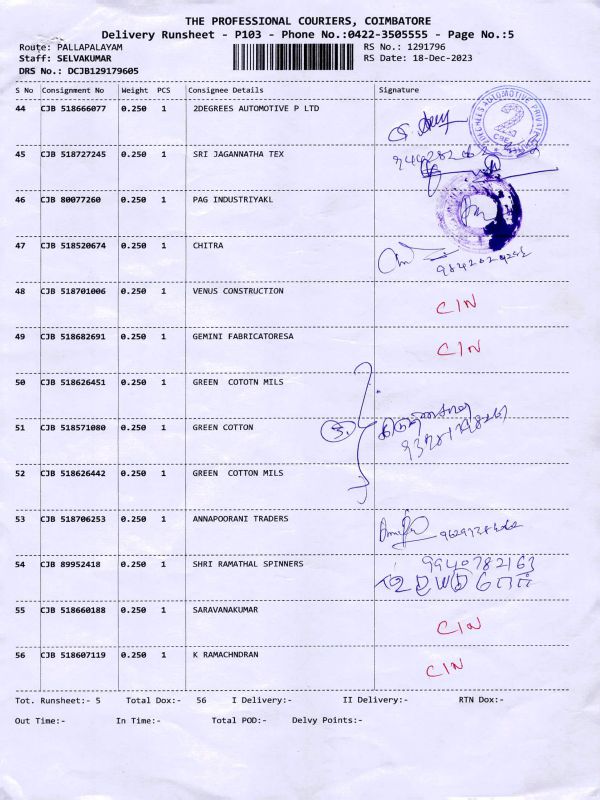 THE PROFESSIONAL COURIERS, COIMBATORE
Delivery Runsheet - P103 - Phone No.:0422-3505555 - Page No.:5
Route: PALLAPALAYAM RS No.: 1291796
Staff: SELVAKUMAR RS Date: 18-Dec-2023
DRS No.: DCJB129179605
S No Consignment No Weight PCS Consignee Details Signature
44 CJB 518666077 0.250 1 2DEGREES AUTOMOTIVE P LTD
45 CJB 518727245 0.250 1 SRI JAGANNATHA TEX
46 CJB 80077260 0.250 1 PAG INDUSTRIYAKL
47 CJB 518520674 0.250 1 CHITRA
48 CJB 518701006 0.250 1 VENUS CONSTRUCTION C/N
49 CJB 518682691 0.250 1 GEMINI FABRICATORESA C/N
50 CJB 518626451 0.250 1 GREEN COTOTN MILS
51 CJB 518571080 0.250 1 GREEN COTTON 3.
52 CJB 518626442 0.250 1 GREEN COTTON MILS
53 CJB 518706253 0.250 1 ANNAPOORANI TRADERS
54 CJB 89952418 0.250 1 SHRI RAMATHAL SPINNERS 9940782163
55 CJB 518660188 0.250 1 SARAVANAKUMAR C/N
56 CJB 518607119 0.250 1 K RAMACHNDRAN C/N
Tot. Runsheet:- 5 Total Dox:- 56 I Delivery:- II Delivery:- RTN Dox:-
Out Time:- In Time:- Total POD:- Delvy Points:-